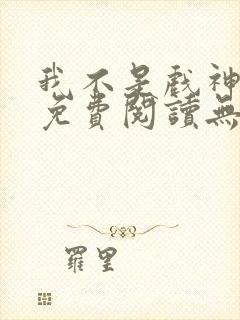 我不是戲神
免費閱讀無
羅里